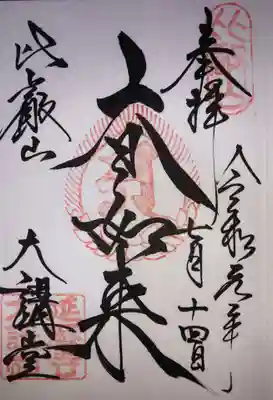 奉拝
令和元年七月十四日
大日如来
比叡山
大講堂